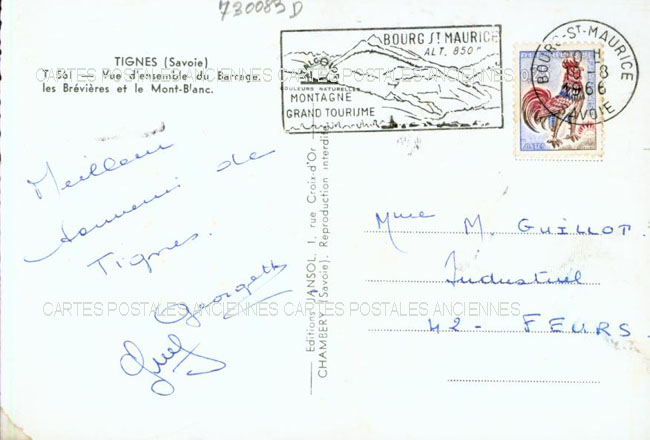 730083D
TIGNES (Savoie)
T. 561 - Vue d'ensemble du Barrage,
les Brévières et le Mont-Blanc.
BOURG ST MAURICE
ALT. 850m
COULEURS NATURELLES
MONTAGNE
GRAND TOURISME
BOURG-ST-MAURICE
-8
1966
SAVOIE
CARTES POSTALES ANCIENNES CARTES POSTALES ANCIENNES
Meilleur
souvenir de
Tignes.
Georgette
Editions JANSOL, 1, rue Croix-d'Or
CHAMBERY (Savoie). Reproduction interdite
Mme M. GUILLOT.
Industriel
42 - FEURS.
CARTES POSTALES ANCIENNES CARTES POSTALES ANCIENNES
CARTES POSTALES ANCIENNES CARTES POSTALES ANCIENNES